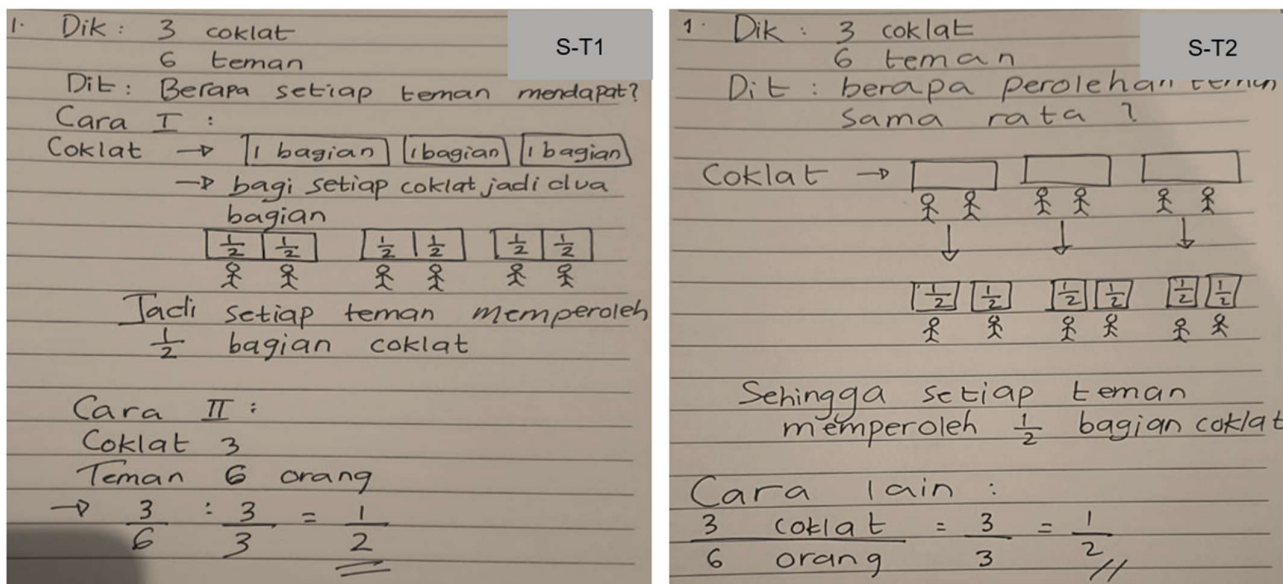 S-T1
1. Dik : 3 coklat
6 teman
Dit : Berapa setiap teman mendapat?
Cara I :
Coklat → 1 bagian 1 bagian 1 bagian
→ bagi setiap coklat jadi dua
bagian
1/2 1/2 1/2 1/2 1/2 1/2
Jadi setiap teman memperoleh
1/2 bagian coklat
Cara II :
Coklat 3
Teman 6 orang
→ 3/6 : 3/3 = 1/2
S-T2
1. Dik : 3 coklat
6 teman
Dit : berapa perolehan teman
sama rata ?
Coklat →
1/2 1/2 1/2 1/2 1/2 1/2
Sehingga setiap teman
memperoleh 1/2 bagian coklat
Cara lain :
3 coklat / 6 orang = 3/3 = 1/2 //